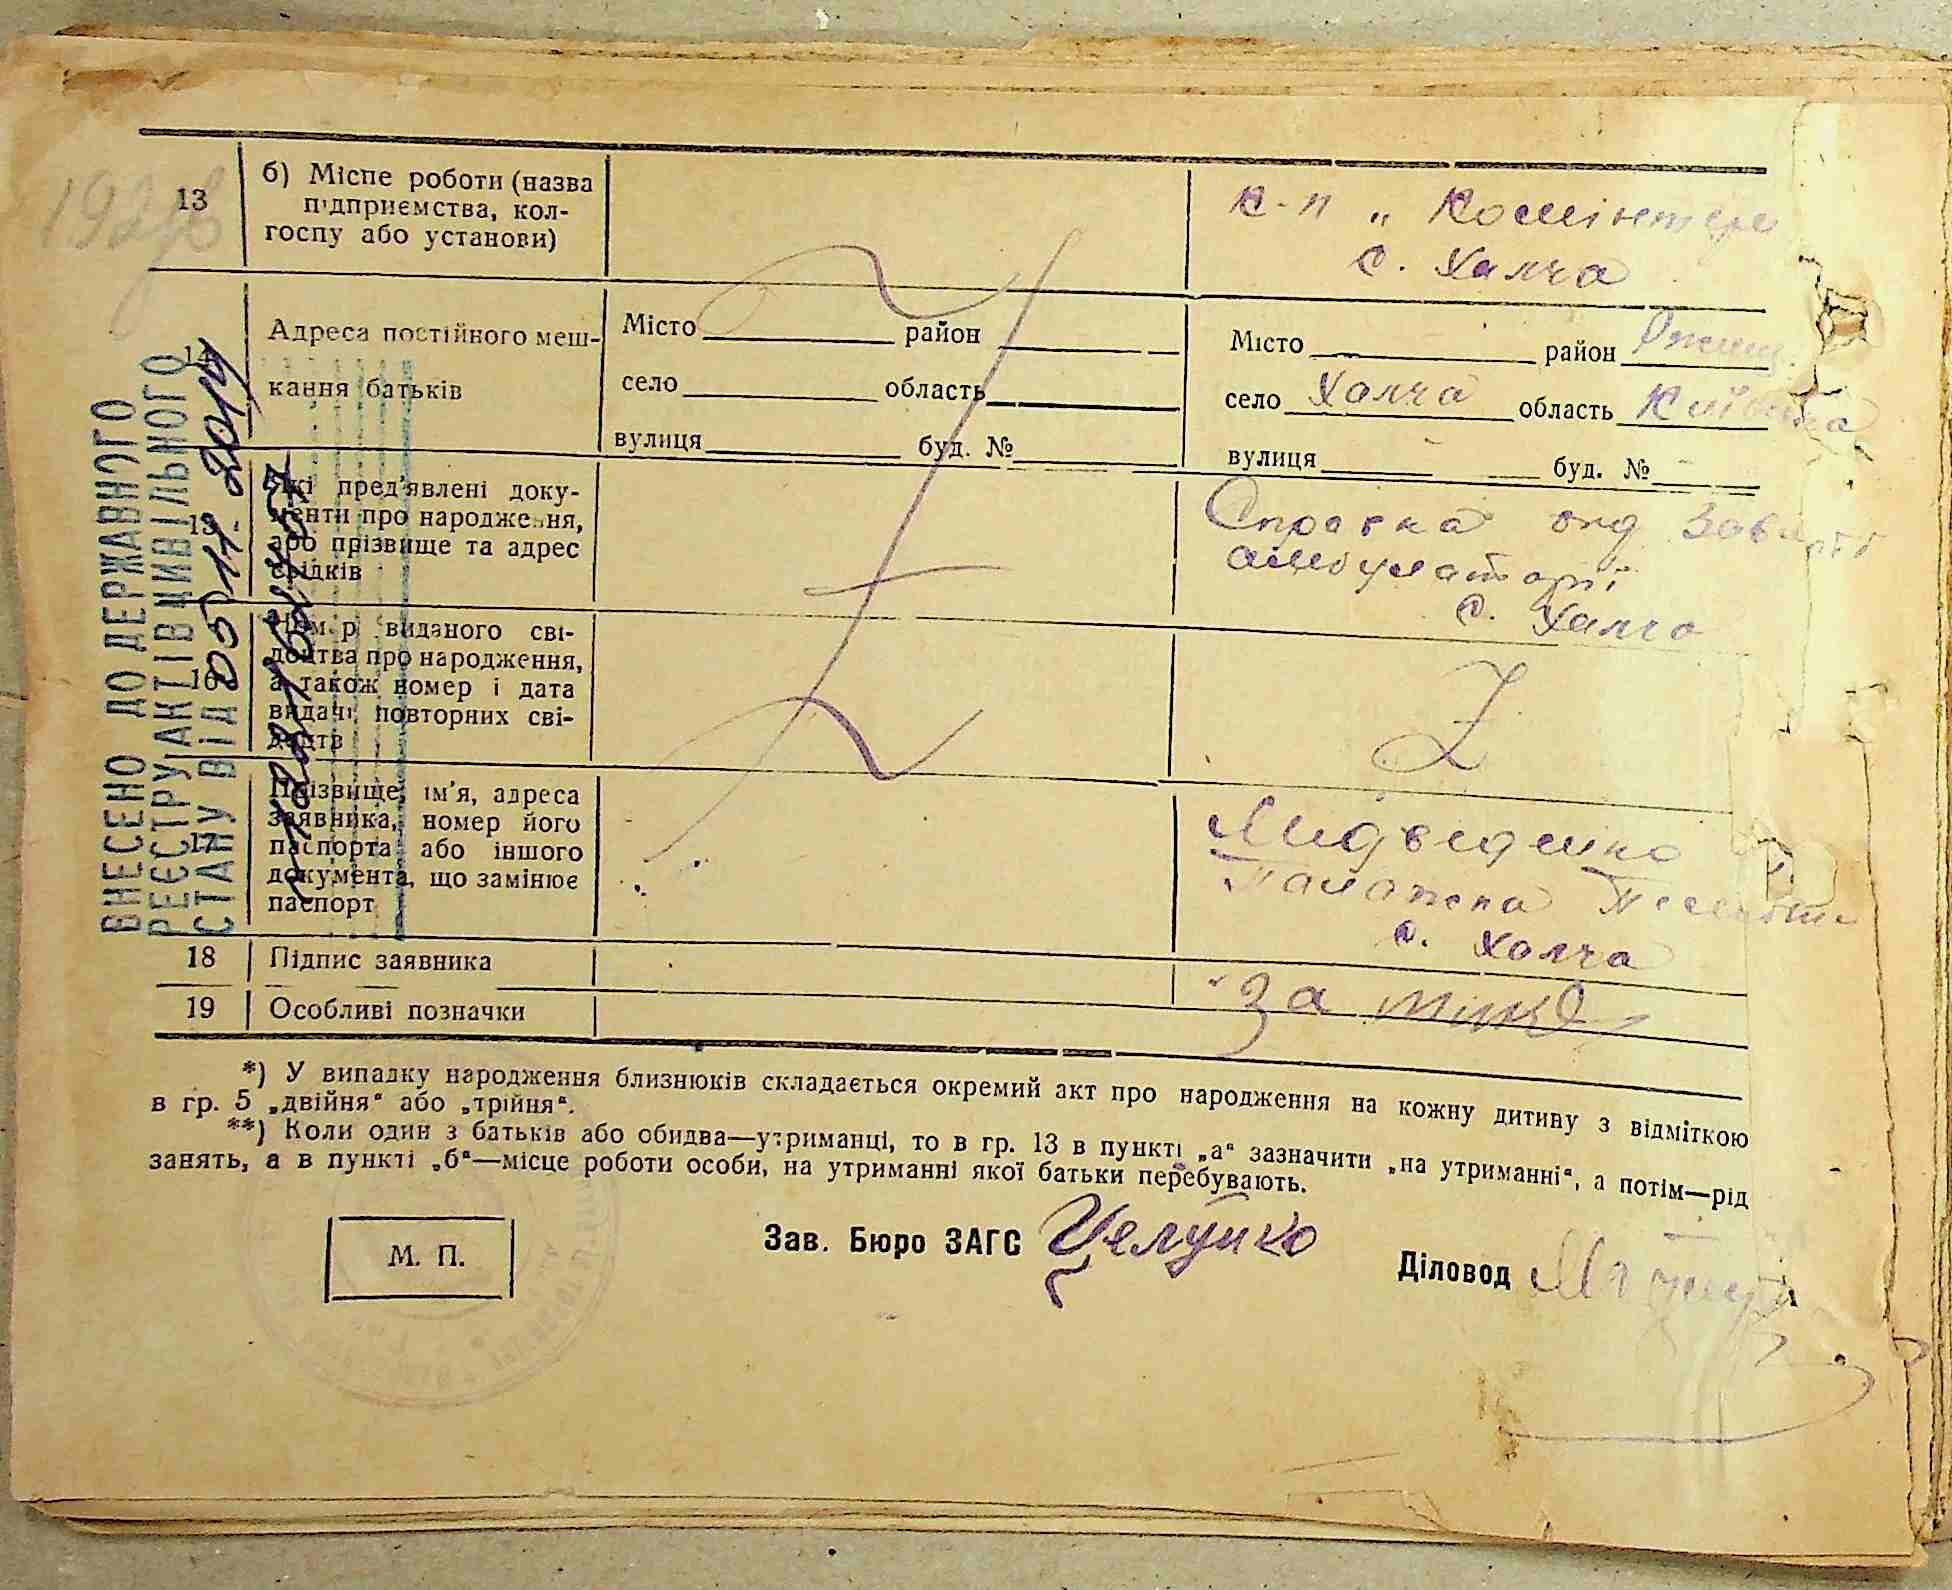 13
б) Місце роботи (назва
підприємства, кол-
госпу або установи)
к-п „ Комінтерн
с. Халча
14
Адреса постійного меш-
кання батьків
Місто район
село область
вулиця буд. №
Місто район
село Халча область Київська
вулиця буд. №
15
Які пред'явлені доку-
менти про народження,
або прізвище та адрес
свідків
Справка від
амбулаторії
с. Халча
16
Номер виданого сві-
доцтва про народження,
а також номер і дата
видачі повторних сві-
доцтв
17
Прізвище, ім'я, адреса
заявника, номер його
паспорта або іншого
документа, що замінює
паспорт
с. Халча
18 Підпис заявника
19 Особливі позначки
*) У випадку народження близнюків складається окремий акт про народження на кожну дитину з відміткою
в гр. 5 „двійня“ або „трійня“.
**) Коли один з батьків або обидва—утриманці, то в гр. 13 в пункті „а“ зазначити „на утриманні“, а потім—рід
занять, а в пункті „б“—місце роботи особи, на утриманні якої батьки перебувають.
М. П.
Зав. Бюро ЗАГС Целуйко
Діловод
ВНЕСЕНО ДО ДЕРЖАВНОГО
РЕЄСТРУ АКТІВ ЦИВІЛЬНОГО
СТАНУ ВІД 05 11. 2014